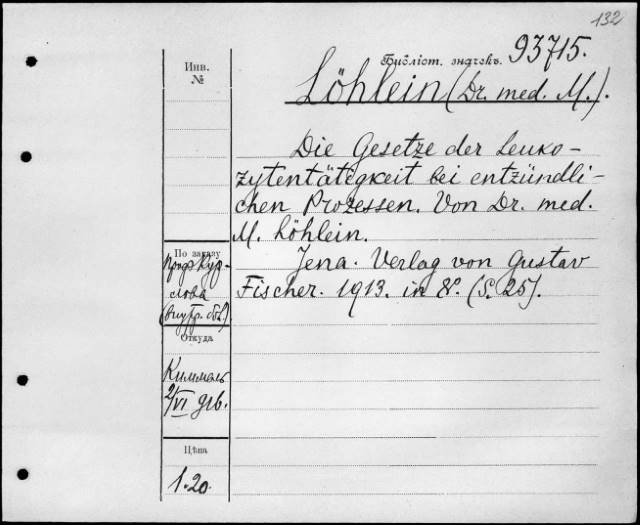 132
Библіот. значекъ. 93715.
Инв.
№
Löhlein (Dr. med. M.).
Die Gesetze der Leuko-
zytentätigkeit bei entzündli-
chen Prozessen. Von Dr. med.
M. Löhlein.
Jena. Verlag von Gustav
Fischer. 1913. in 8°. (S. 25).
По заказу
Проф. Кур-
лова
(Внутр. об.)
Откуда
Киммель
2/VI
Цѣна
1.20